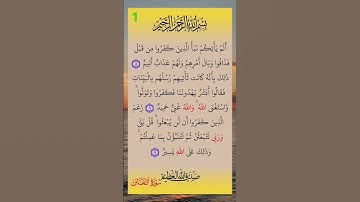 1
بِسْمِ اللَّهِ الرَّحْمَٰنِ الرَّحِيمِ
أَلَمْ يَأْتِكُمْ نَبَأُ الَّذِينَ كَفَرُوا مِن قَبْلُ
فَذَاقُوا وَبَالَ أَمْرِهِمْ وَلَهُمْ عَذَابٌ أَلِيمٌ
ذَٰلِكَ بِأَنَّهُ كَانَت تَّأْتِيهِمْ رُسُلُهُم بِالْبَيِّنَاتِ
فَقَالُوا أَبَشَرٌ يَهْدُونَنَا فَكَفَرُوا وَتَوَلَّوا ۚ
وَّاسْتَغْنَى اللَّهُ ۚ وَاللَّهُ غَنِيٌّ حَمِيدٌ زَعَمَ
الَّذِينَ كَفَرُوا أَن لَّن يُبْعَثُوا ۚ قُلْ بَلَىٰ
وَرَبِّي لَتُبْعَثُنَّ ثُمَّ لَتُنَبَّؤُنَّ بِمَا عَمِلْتُمْ ۚ
وَذَٰلِكَ عَلَى اللَّهِ يَسِيرٌ
صدق الله العظيم
سورة التغابن